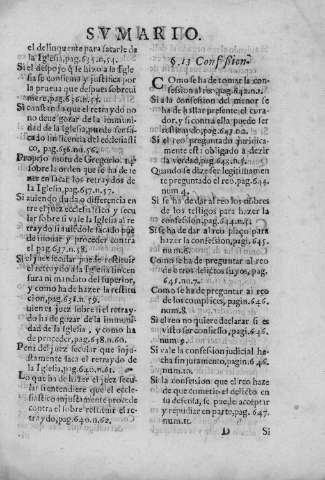 SVMARIO.
el delinquente para sacarle de
la Iglesia, pag. 635. n. 54.
Si el despojo q̃ se hizo a la Igle
sia se consuma y justifica por
la prueua que despues sobreui
niere, pag. 636. n. 55.
Si constando que el retraydo no
no deue gozar de la immuni
dad de la Iglesia, puede ser sa
cado sin licencia del ecclesiast
ico, pag. 636. no. 56.
Proprio motu de Gregorio. 14.
sobre la orden que se ha de te
ner en sacar los retraydos de
la Iglesia, pag. 637. n. 57.
Si auiendo duda o diferencia en
tre el juez ecclesiastico y secu
lar sobre si vale la Iglesia al re
traydo
de innouar y proceder contra
el pag. 637. n. 58.
Si el juez secular puede restituir
el retraydo a la Iglesia sin cen
sura ni mandato del superior,
y como ha de hazer la restitu
cion, pag. 638. n. 59.
uien es juez sobre si el retray
do ha de gozar de la immuni
dad de la Iglesia, y como ha
de proceder, pag. 638. n. 60.
Pena del juez secular que inju
stamente saca el retraydo de
la Iglesia, pag. 640. n. 61.
Lo que ha de hazer el juez secu
lar si entendiere que el eccle
siastico injustamente procede
contra el sobre restituir el re-
traydo, pag. 640. n. 62.
§. 13 Confession
Como se ha de tomar la con-
fession al reo pag. 642. n. 1.
Si a la confession del menor se
ha de hallar presente, el cura
dor, y si contra ella puede ser
restituydo, pag. 643. n. 2.
Si el reo preguntado juridica
mente està obligado a dezir
la verdad, pag. 643. n. 3.
Quando se dize ser legitimamen
te preguntado el reo, pag. 644.
num. 4.
Si se ha de dar al reo los nõbres
de los testigos para hazer la
confession, pag. 644. n. 5.
Si se ha de dar al reo plaço para
hazer la confession, pagi. 645.
nu. 6.
Como se ha de preguntar al reo
de otros delictos suyos, pag.
645. nu. 7.
Como se ha de preguntar al reo
de los complices, pagin. 646.
num. 8.
Si el reo no quiere declarar si es
visto ser confiesso, pagi. 646.
num. 9.
Si vale la confession judicial he-
cha sin juramento, pagin. 646.
num. 10.
Si la confession que el reo haze
de que cometio el delicto en
su defensa, se puede acceptar
y repudiar en parte, pag. 647.
num. 11.
D Si